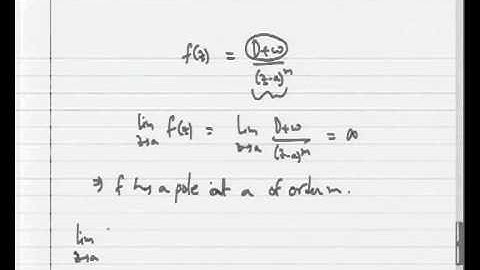 f(z) = D+w / (z-a)^m
lim z→a f(z) = lim z→a D+w / (z-a)^m = ∞
⇒ f has a pole at a of order m.
lim z→a